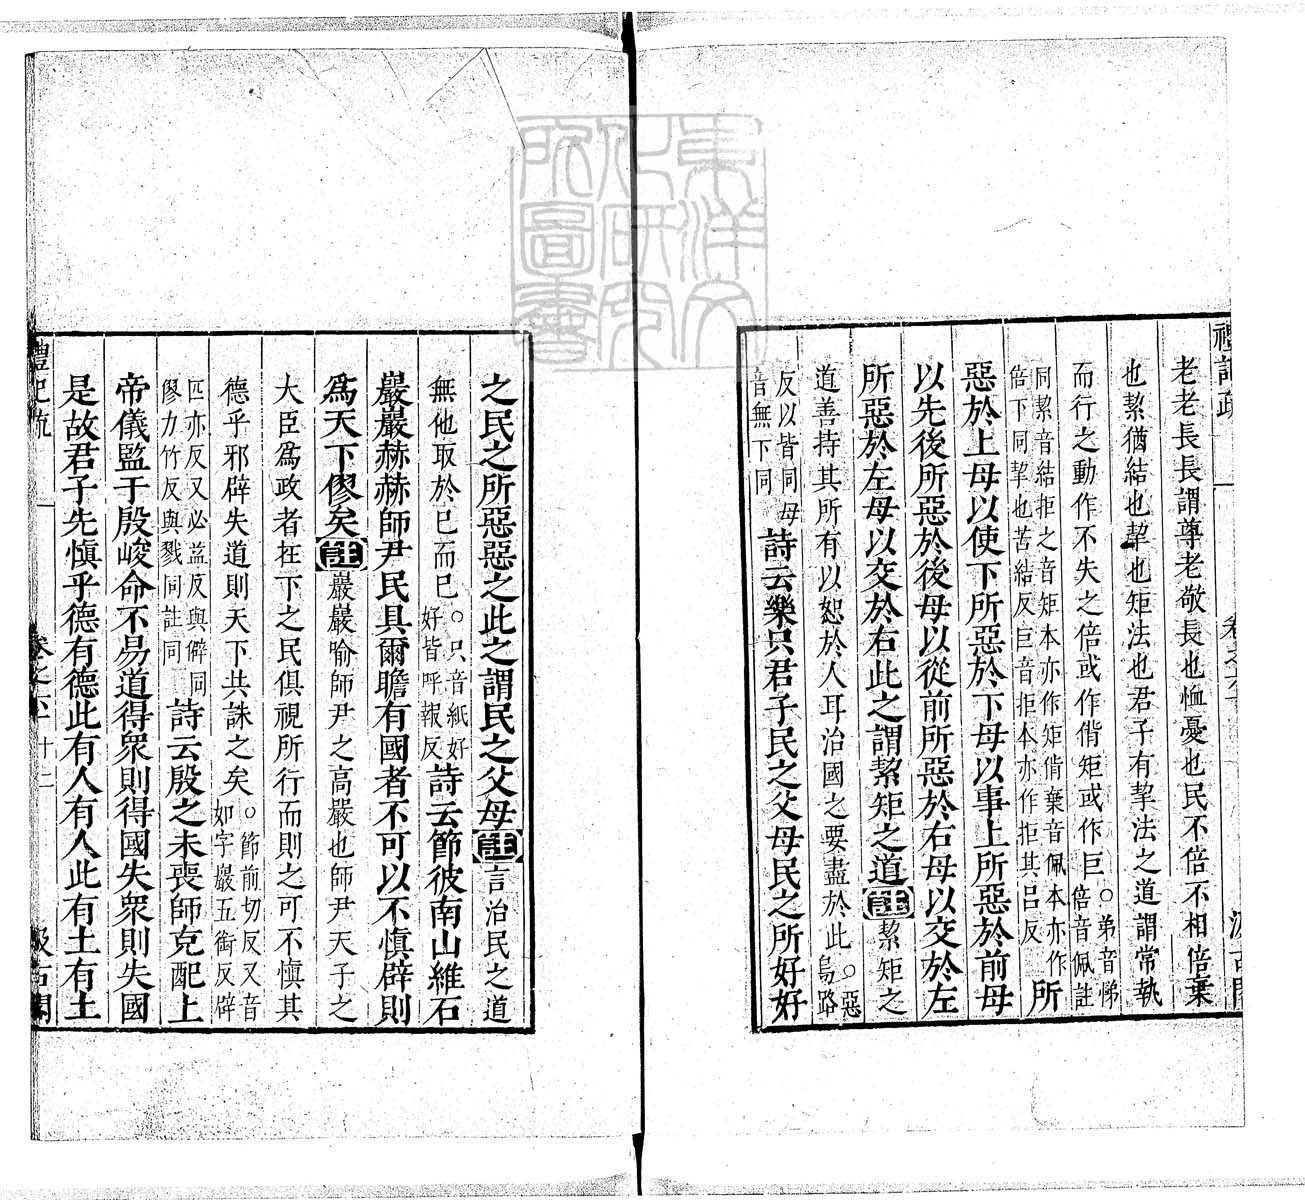 老老長長謂尊老敬長也恤憂也民不倍不相倍棄
也絜猶結也挈也矩法也君子有挈法之道謂當執
而行之動作不失之倍或作偝矩或作巨〇弟音悌倍音佩註
同絜音結拒之音矩本亦作矩偝棄音佩本亦作倍下同挈也苦結反巨音拒本亦作拒其呂反所
惡於上毋以使下所惡於下毋以事上所惡於前毋
以先後所惡於後毋以從前所惡於右毋以交於左
所惡於左毋以交於右此之謂絜矩之道註絜矩之
道善持其所有以恕於人耳治國之要盡於此〇惡烏路
反以皆同毋音無下同詩云樂只君子民之父母民之所好好
之民之所惡惡之此之謂民之父母註言治民之道
無他取於己而已〇只音紙好好皆呼報反詩云節彼南山維石
巖巖赫赫師尹民具爾瞻有國者不可以不慎辟則
爲天下僇矣註巖巖喻師尹之高嚴也師尹天子之
大臣爲政者在下之民俱視所行而則之可不慎其
德乎邪辟失道則天下共誅之矣〇節前切反又音如字巖五銜反辟
匹亦反又必益反與僻同僇力竹反與戮同註同詩云殷之未喪師克配上
帝儀監于殷峻命不易道得衆則得國失衆則失國
是故君子先慎乎德有德此有人有人此有土有土
禮記疏 卷之六十 十二 汲古閣